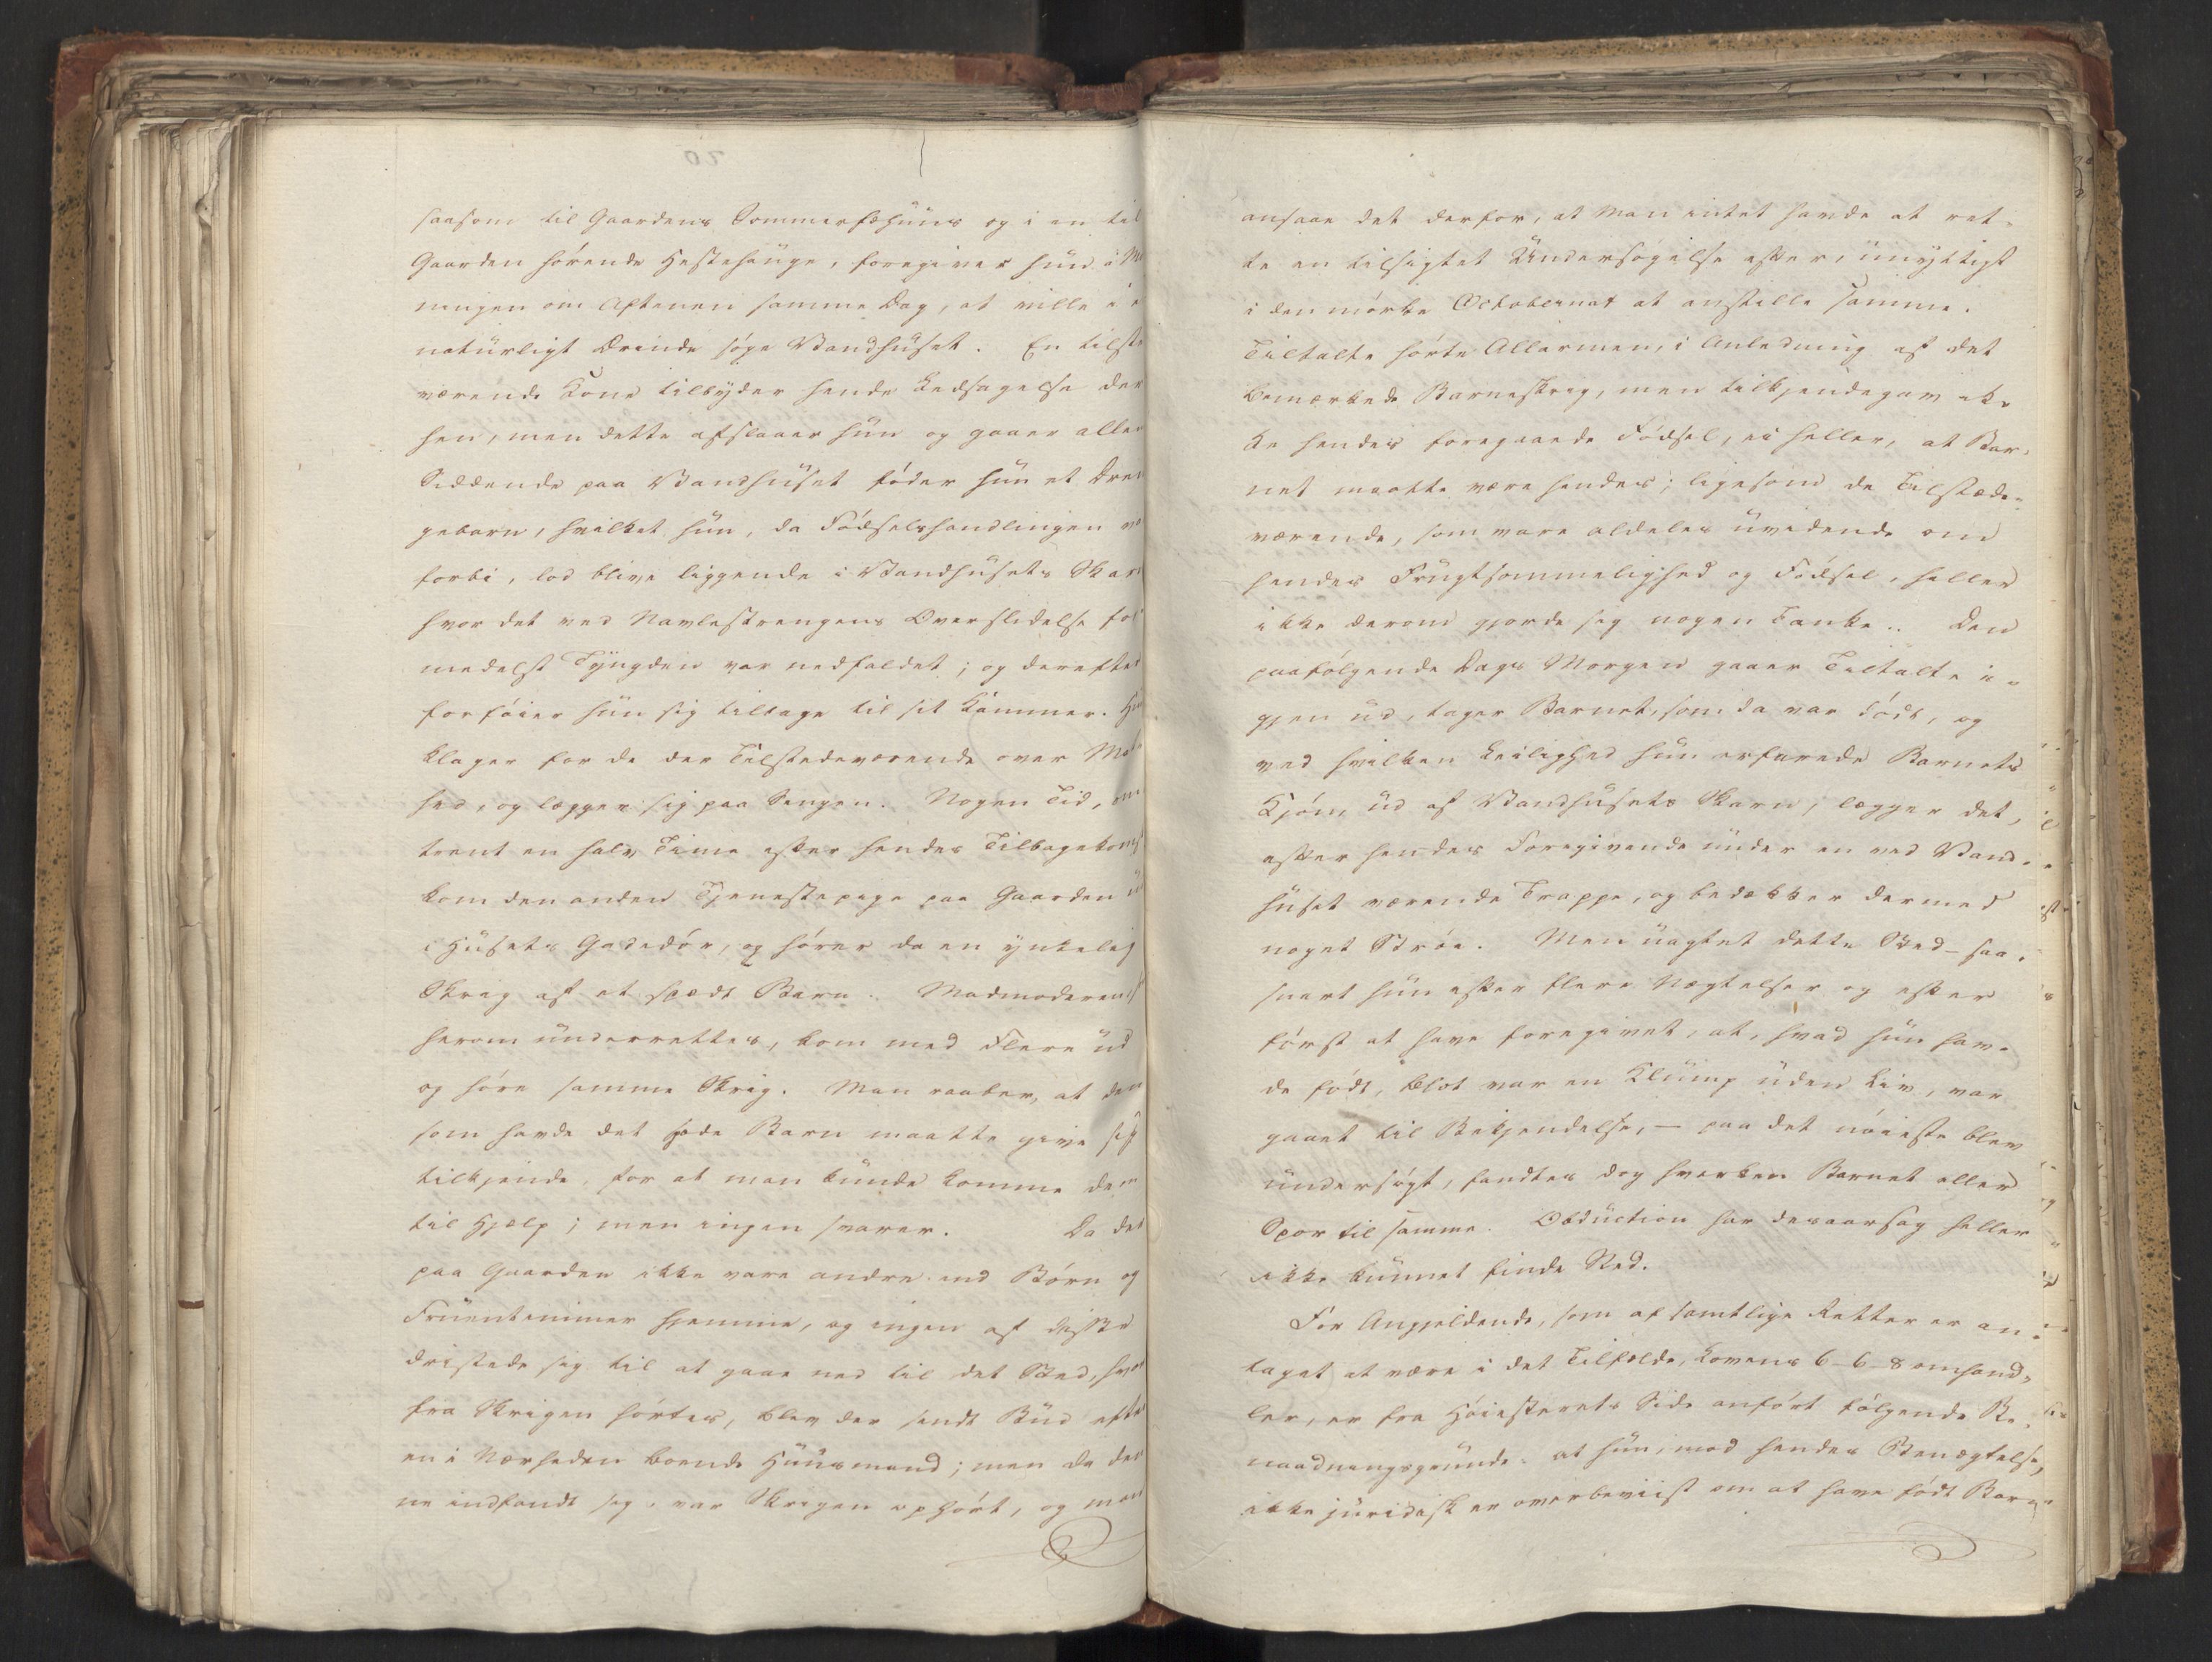 saasom til Gaardens Sommerfæhuus og i en til
Gaarden hörende Hestehauge, foregiver hun i
ningen om Aftenen samme Dag, at ville i
natürligt Ærinde søge Vandhuset. En tilste
værende Kone tilbyder hende Ledsagelse der
hen, men dette afslaaer hun og gaaer alle
Siddende paa Vandhuset föder hun et Dren
gebarn, hvilket hun, da Födselshandlingen va
forbi, lod blive liggende i Vandhusets Skarn
hvor det ved Navlestrengens Overslidelse for
medelst Tyngden var nedfaldet; og derefter
forföier hun sig tilbage til sit Kammer. Hun
klager for de der Tilstedeværende over Mat
hed, og lægger sig paa Sengen. Nogen Tid, om
trent en halv Time efter hendes Tilbagekomst
kom den anden Tjenestepige paa Gaarden ud
i Husets Gadedör, og hörer da en ynkelig
Skrig af et spædt Barn. Madmoderen
herom underrettes, kom med Flere ud
og höre samme Skrig. Man raaber, at den
som havde det spæde Barn maatte give sig
tilkjende, for at man kunde komme dem
til Hjelp; men ingen svarer. Da der
paa Gaarden ikke vare andre end Börn og
Fruentimmer hjemme, og ingen af disse
dristede sig til at gaae ned til det Sted, hvor
fra Skrigen hörtes, blev der sendt Bud efter
en i Nærheden boende Huusmand; men da den
ne indfandt sig, var Skrigen ophört, og man
ansaae det derfor, at Man intet havde at ret-
te en tilsigtet Undersögelse efter, unyttigt
i den mörke Octobernat at anstille samme.
Tiltalte hörte Allarmen, i Anledning af det
bemærkede Barneskrig, men tilkjendegav ik-
ke hendes foregaaende Födsel, ei heller, at Bar-
net maatte være hendes; ligesom de Tilstæde-
værende, som vare aldeles uvidende om
hendes Frugtsommelighed og Födsel, heller
ikke derom gjorde sig nogen Tanke. Den
paafölgende Dags Morgen gaaer Tiltalte i-
gjen ud, tager Barnet, som da var dödt, og
ved hvilken Leilighed hun erfarede Barnets
Kjön, ud af Vandhusets Skarn, lægger det,
efter hendes Foregivende under en ved Vand-
huset værende Trappe, og bedækker dermed
noget Ströe. Men uagtet dette Sted - saa-
snart hun efter flere Nægtelser og efter
först at have foregivet, at, hvad hun hav-
de födt, blot var en Klump uden Liv, var
gaaet til Bekjendelse, — paa det nöieste blev
undersögt, fandtes dog hverken Barnet eller
Spor til samme. Obduction har desaarsag heller
ikke kunnet finde Sted.
For Angjeldende, som af samtlige Retter er an-
taget at være i det Tilfælde, Lovens 6-6-8 omhand-
ler, er fra Höiesterets Side anfört fölgende Be-
naadningsgrunde: at hun, mod hendes Benægtelse,
ikke juridisk er overbeviist om at have födt Bar-